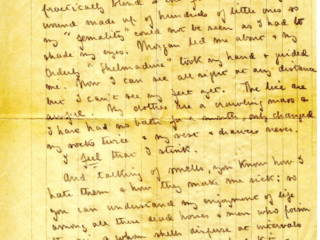 practically blind &
wound made up of hundreds of little ones so
my "                " could not be seen as I had to
shade my eyes. Morgan led me about & my
Orderly "Thelmadine" took my hand & guided
me. Now I can see all right at any distance
but I can't see my feet yet. The lice are
My clothes are a crawling mass &
I have had no bath for a month, only changed
my socks twice & my vest & drawers never.
I feel that I stink.
And talking of smells, you know how I
hate them & how they make me sick: so
you can understand my enjoyment of life
among all these dead horses & men who form
whom shells disperse at intervals